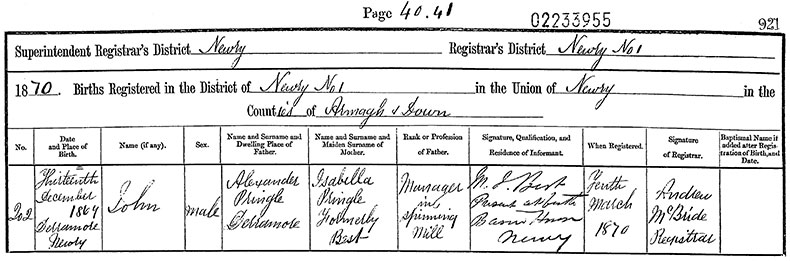 Page 40.41
02233955
921
Superintendent Registrar's District Newry Registrar's District Newry No 1
1870. Births Registered in the District of Newry No 1 in the Union of Newry in the
Counties of Armagh & Down
No. Date and Place of Birth. Name (if any). Sex. Name and Surname and Dwelling Place of Father. Name and Surname and Maiden Surname of Mother. Rank or Profession of Father. Signature, Qualification, and Residence of Informant. When Registered. Signature of Registrar. Baptismal Name if added after Registration of Birth, and Date.
202
Thirteenth
December
1869
Derramore
Newry
John
male
Alexander
Pringle
Derramore
Isabella
Pringle
Formerly
Best
Manager
in
Spinning
Mill
M. J. Best
Present at birth
Newry
Tenth
March
1870
Andrew
McBride
Registrar